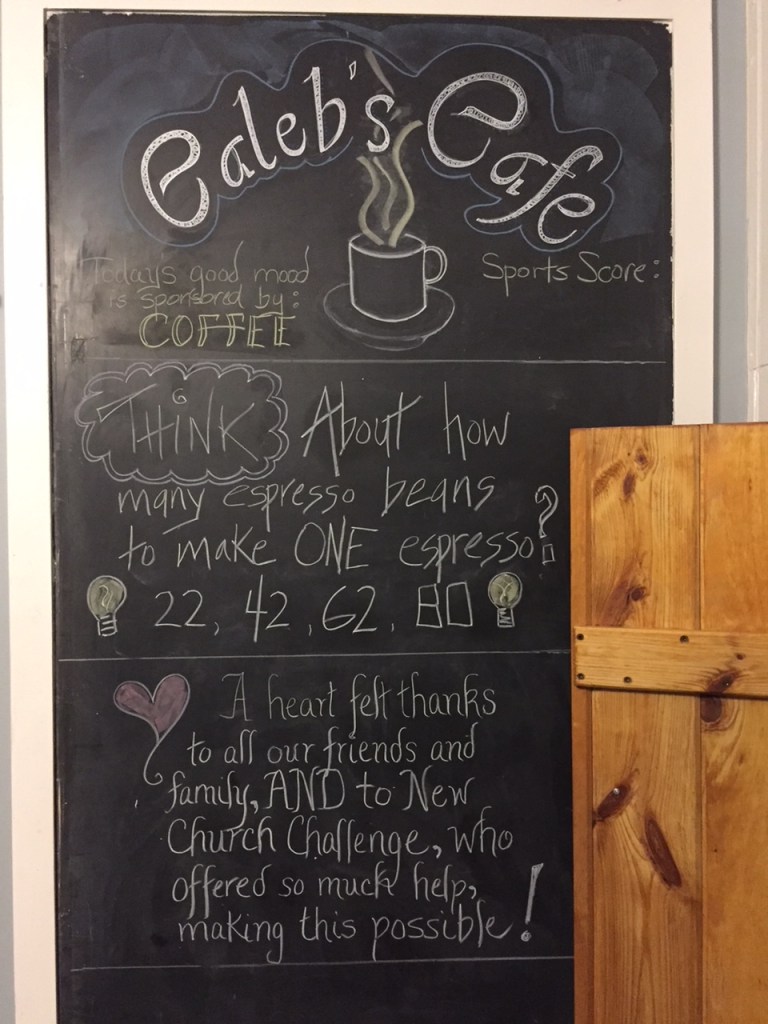 Caleb's Cafe
Today's good mood
is sponsored by:
COFFEE
Sports Score:
THiNK About how
many espresso beans
to make ONE espresso?
22, 42, 62, 80
A heart felt thanks
to all our friends and
family, AND to New
Church Challenge, who
offered so much help,
making this possible!